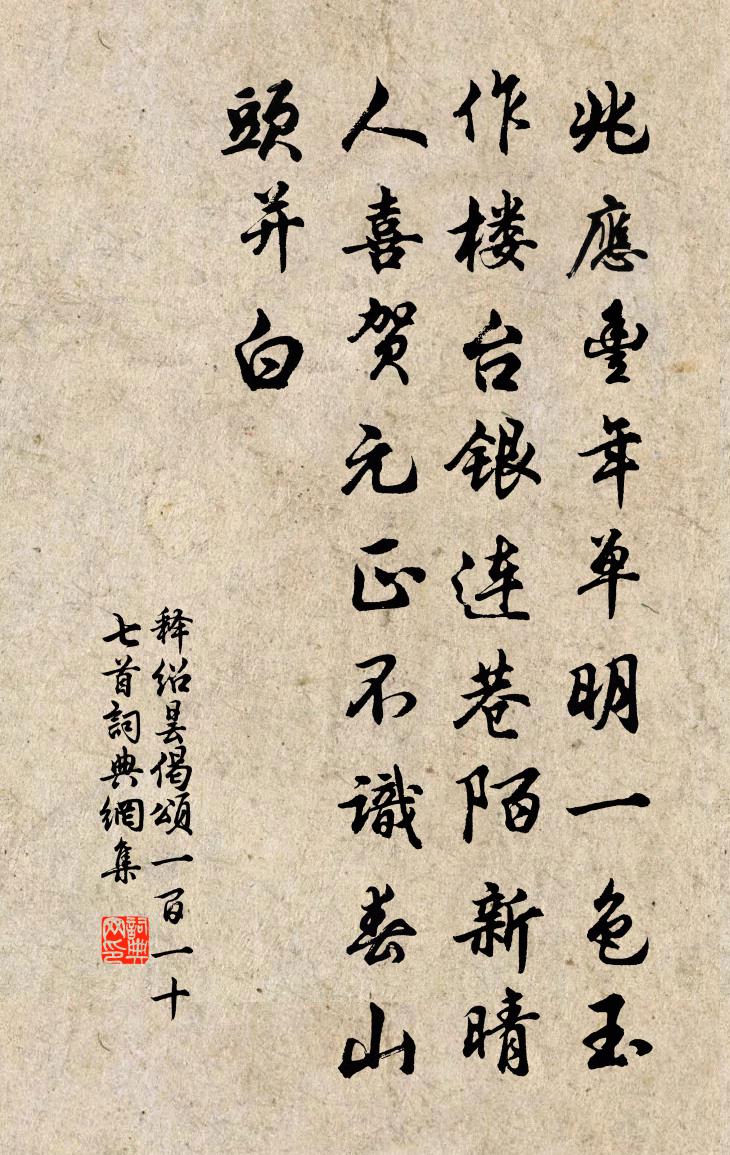 兆應豊年单明一色玉
作楼台銀連巷陌新晴
人喜贺元正不識春山
頭并白
释绍昙偈頌一百一十
七首詞典網集
詞典
网印